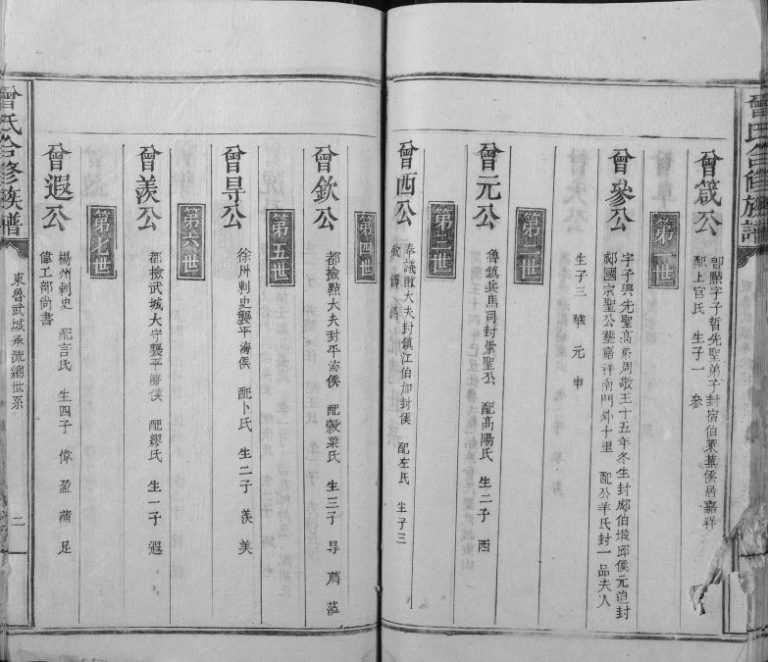 曾氏合修族譜
曾箴公
即點字子晳先聖弟子封宿伯萊蕪侯居嘉祥
配上官氏 生子一 參
第一世
曾參公
字子輿先聖高弟周敬王十五年冬生封郕伯瑕邱侯元追封
郕國宗聖公塟嘉祥南門外十里 配公羊氏封一品夫人
生子三 華 元 申
第二世
曾元公
魯鎮兵馬司封崇聖公 配高陽氏 生二子 西
第三世
曾西公
奉議散大夫封鎮江伯加封侯 配左氏 生子三
欽
第四世
曾欽公
都撿點大夫封平海侯 配穀梁氏 生三子 㝵 蔿
第五世
曾㝵公
徐州刺史襲平海侯 配卜氏 生二子 羨 美
第六世
曾羨公
都撿武城大守襲平海侯 配繆氏 生一子 遐
第七世
曾遐公
楊州刺史 配言氏 生四子 偉 盈 蒲 足
偉工部尚書
曾氏合修族譜
東魯武城承流總世系
二